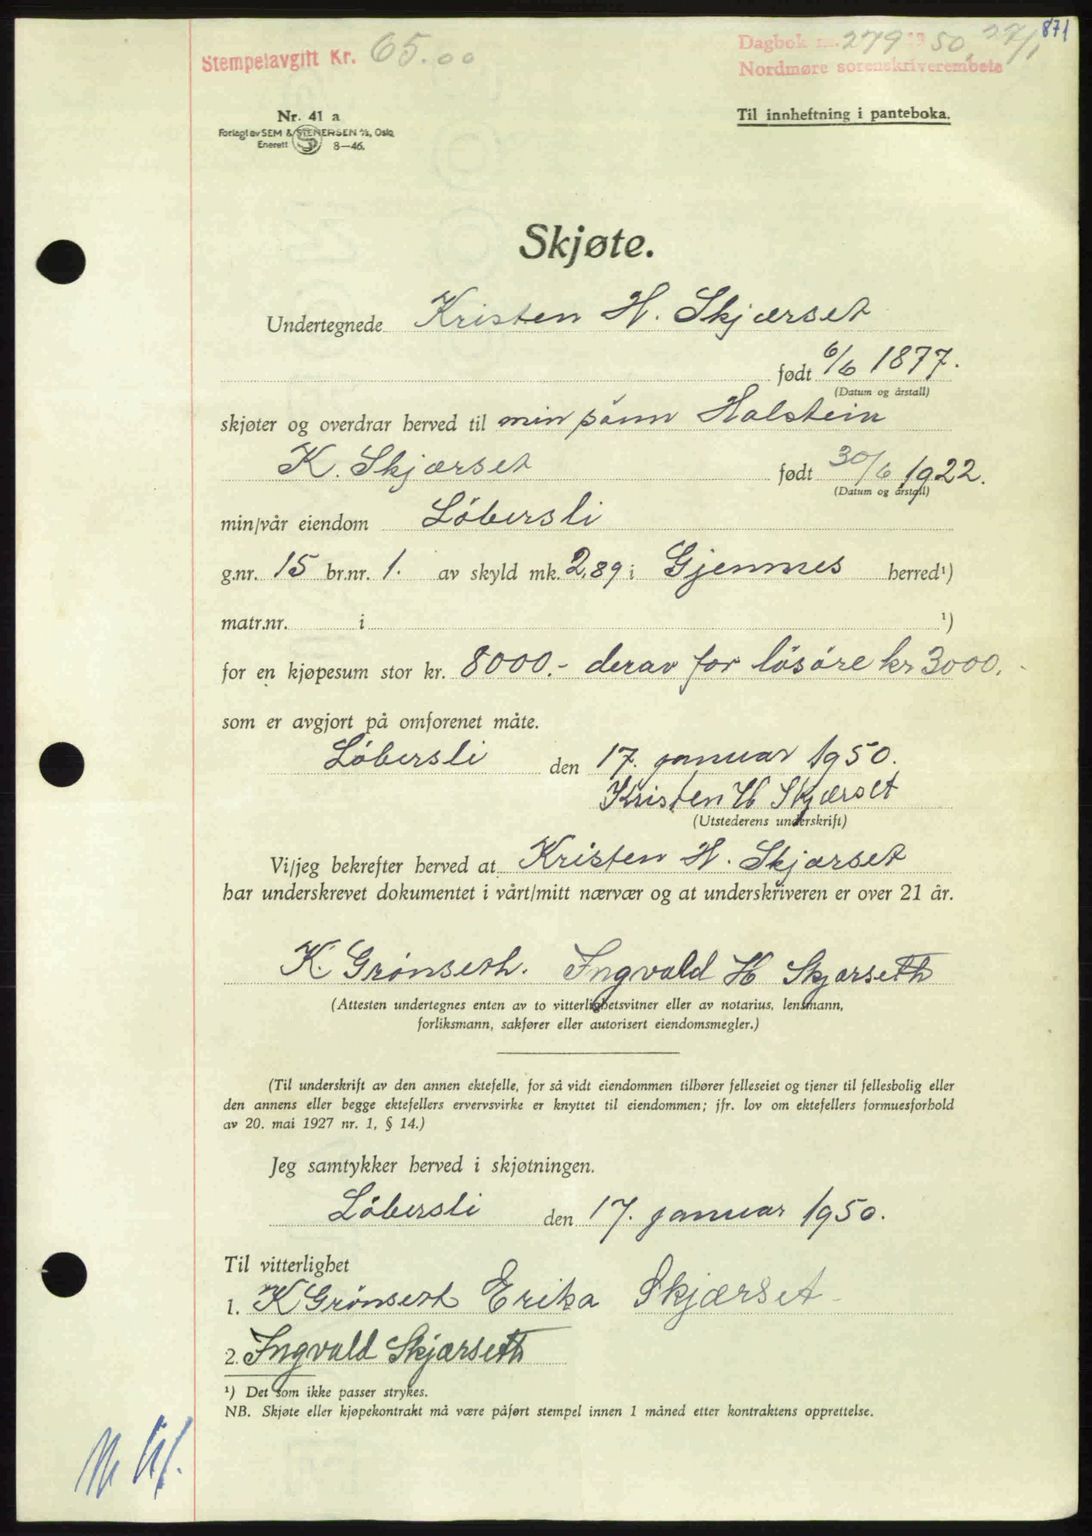 871
Stempelavgift Kr. 65.00
Dagbok nr. 279 1950, 27/1
Nordmøre sorenskriverembete
Nr. 41 a
Forlagt av SEM & STENERSEN A/S, Oslo
Enerett 8—46.
Til innheftning i panteboka.
Skjøte.
Undertegnede Kristen H. Skjærset
født 6/6 1877.
(Datum og årstall)
skjøter og overdrar herved til min sønn Halstein
K. Skjærset født 30/6 1922.
(Datum og årstall)
min/vår eiendom Löbersli
g.nr. 15 br.nr. 1. av skyld mk. 2,89 i Gjemnes herred¹)
matr.nr. i ¹)
for en kjøpesum stor kr. 8000.- derav for lösöre kr 3000.-
som er avgjort på omforenet måte.
Löbersli den 17. januar 1950.
Kristen H Skjærset
(Utstederens underskrift)
Vi/jeg bekrefter herved at Kristen H. Skjærset
har underskrevet dokumentet i vårt/mitt nærvær og at underskriveren er over 21 år.
K. Grönseth. Ingvald H Skjærseth
(Attesten undertegnes enten av to vitterlighetsvitner eller av notarius, lensmann,
forliksmann, sakfører eller autorisert eiendomsmegler.)
(Til underskrift av den annen ektefelle, for så vidt eiendommen tilhører felleseiet og tjener til fellesbolig eller
den annens eller begge ektefellers ervervsvirke er knyttet til eiendommen; jfr. lov om ektefellers formuesforhold
av 20. mai 1927 nr. 1, § 14.)
Jeg samtykker herved i skjøtningen.
Löbersli den 17. januar 1950.
Til vitterlighet
1. K Grönseth Erika Skjærset
2. Ingvald Skjærseth
¹) Det som ikke passer strykes.
NB. Skjøte eller kjøpekontrakt må være påført stempel innen 1 måned etter kontraktens opprettelse.